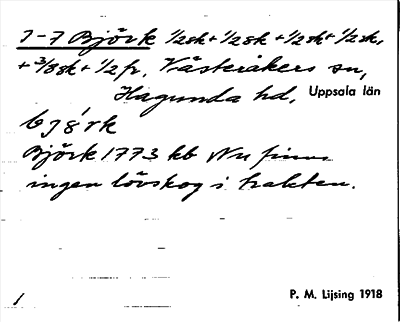 1-7 Björk 1/2sk+1/2sk+1/2sk+1/2sk,
+3/8sk+1/2fr, Västeråkers sn,
Hagunda hd, Uppsala län
bjö́rk
Björk 1773 kb Nu finns
ingen lövskog i trakten.
1
P. M. Lijsing 1918